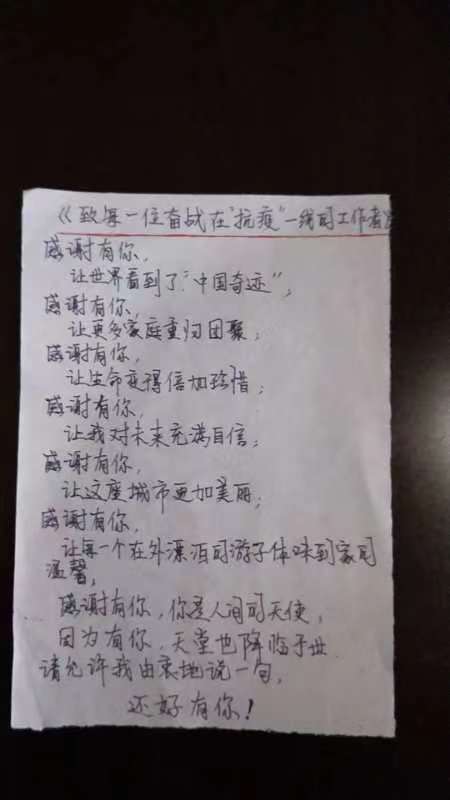 《致每一位奋战在"抗疫"一线的工作者》
感谢有你,
让世界看到了"中国奇迹";
感谢有你,
让更多家庭重归团聚;
感谢有你,
让生命变得倍加珍惜;
感谢有你,
让我对未来充满自信;
感谢有你,
让这座城市更加美丽;
感谢有你,
让每一个在外漂泊的游子体味到家的
温馨;
感谢有你,你是人间的天使,
因为有你,天堂也降临于世.
请允许我由衷地说一句,
还好有你!